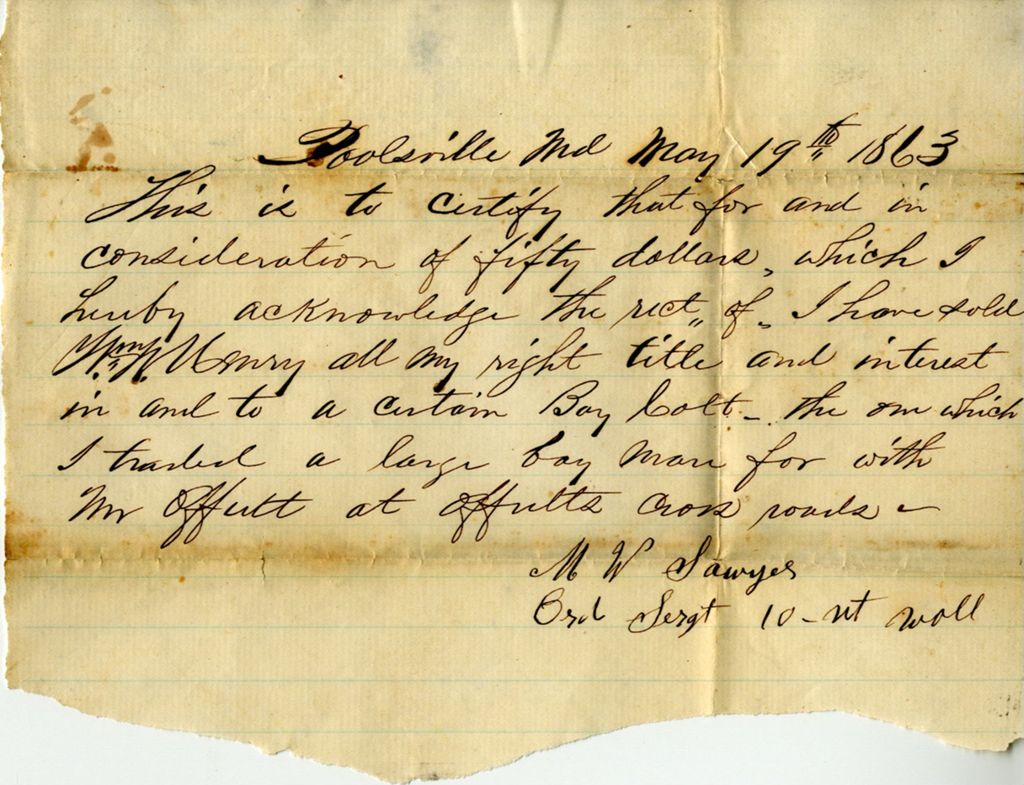 Poolsville Md May 19th 1863
This is to certify that for and in
consideration of fifty dollars, which I
hereby acknowledge the rect, of, I have sold
Wm Henry all my right title and interest
in and to a certain Bay Colt - the one which
I traded a large bay mare for with
Mr Offutt at Offutts Cross roads -
M W Sawyer
Ord Sergt 10 - Vt Voll